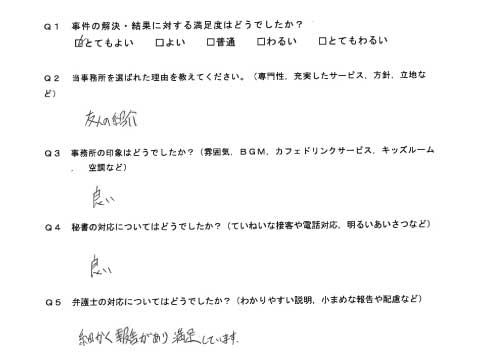 Q1 事件の解決・結果に対する満足度はどうでしたか?
☑とてもよい □よい □普通 □わるい □とてもわるい
Q2 当事務所を選ばれた理由を教えてください。(専門性,充実したサービス,方針,立地な
ど)
友人の紹介
Q3 事務所の印象はどうでしたか?(雰囲気,BGM,カフェドリンクサービス,キッズルーム
, 空調など)
良い
Q4 秘書の対応についてはどうでしたか?(ていねいな接客や電話対応,明るいあいさつなど)
良い
Q5 弁護士の対応についてはどうでしたか?(わかりやすい説明,小まめな報告や配慮など)
細かく報告があり満足しています.